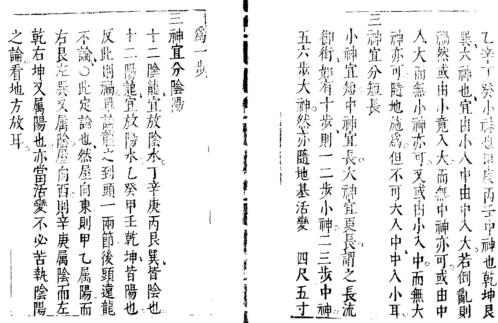 乙辛丁癸小神也甲庚丙壬中神也乾坤艮
巽大神也宜由小入中由中入大若倒亂則
禍然或由小竟入大而無中神亦可或由中
入大而無小神亦可又或由小入中而無大
神亦可隨地施為但不可大入中中入小耳
三神宜分短長
小神宜短中神宜長大神宜更長謂之長流
御街如有十步則一二步小神二三步中神
五六步大神然亦隨地基活變　四尺五寸
為一步
三神宜分陰陽
十二陰龍宜放陰水丁辛庚丙艮巽皆陰也
十二陽龍宜放陽水乙癸甲壬乾坤皆陽也
反此則禍其論龍之到頭一兩節後頭遠龍
不論○此定論也然屋向東則甲乙屬陽而
右艮左巽又屬陰屋向西則辛庚屬陰而左
乾右坤又屬陽也亦當活變不必苦執陰陽
之論看地方放耳